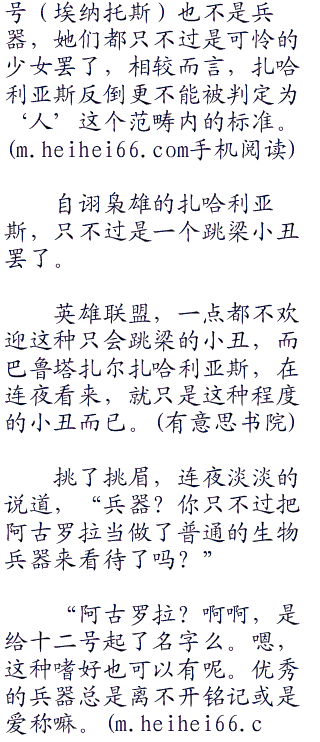 号（埃纳托斯）也不是兵
器，她们都只不过是可怜的
少女罢了，相较而言，扎哈
利亚斯反倒更不能被判定为
‘人’这个范畴内的标准。
(m.heihei66.com手机阅读)
自诩枭雄的扎哈利亚
斯，只不过是一个跳梁小丑
罢了。
英雄联盟，一点都不欢
迎这种只会跳梁的小丑，而
巴鲁塔扎尔扎哈利亚斯，在
连夜看来，就只是这种程度
的小丑而已。(有意思书院)
挑了挑眉，连夜淡淡的
说道，“兵器？你只不过把
阿古罗拉当做了普通的生物
兵器来看待了吗？”
“阿古罗拉？啊啊，是
给十二号起了名字么。嗯，
这种嗜好也可以有呢。优秀
的兵器总是离不开铭记或是
爱称嘛。(m.heihei66.c